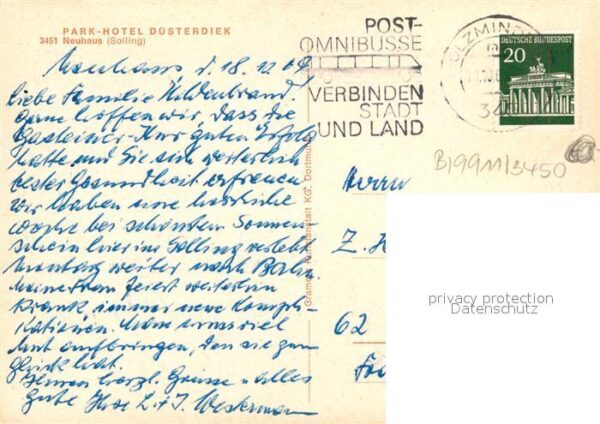 PARK-HOTEL DÜSTERDIEK
3451 Neuhaus (Solling)
POST-
OMNIBUSSE
VERBINDEN
STADT
UND LAND
DEUTSCHE BUNDESPOST
20
Neuhaus d. 18. 10.
Liebe Familie Hildenbrand.
Gerne hoffen wir, dass die
Gasteiner-Kur guten Erfolg
hatte und Sie sich weiterhin
bester Gesundheit erfreuen
wir haben eine herrliche
Woche bei schönstem Sonnen-
schein hier im Solling verlebt
Montag weiter nach
meine Frau weiterhin
krank, immer neue Kompli-
kationen. Man muss viel
Mut aufbringen, den sie zum
Glück hat.
Ihnen herzl. Grüsse u. alles
Gute Ihre L. + J. Westermann
B19911/3450
Herrn
Z.
62
privacy protection
Datenschutz